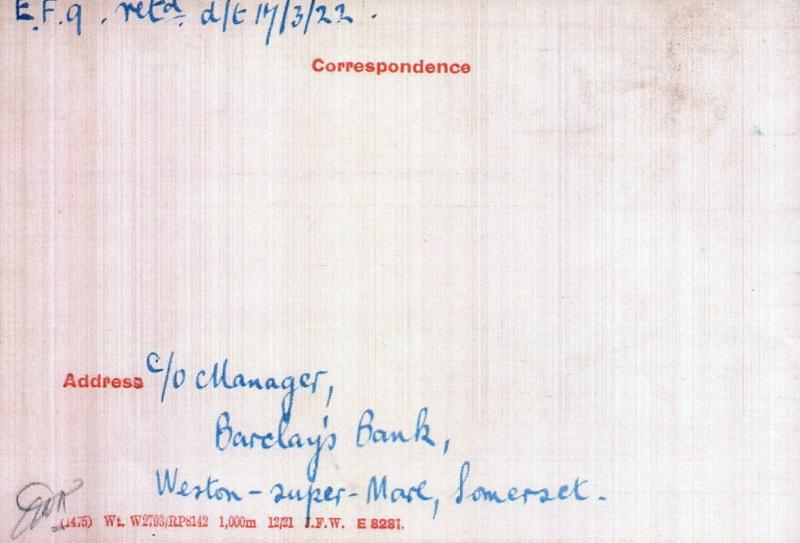 E.F.9. retd. d/t 17/3/22.
Correspondence
Address c/o Manager,
Barclay's Bank,
Weston-super-Mare, Somerset.
(1475) Wt. W2793/RP8142 1,000m 12/21 J.F.W. E 8281.